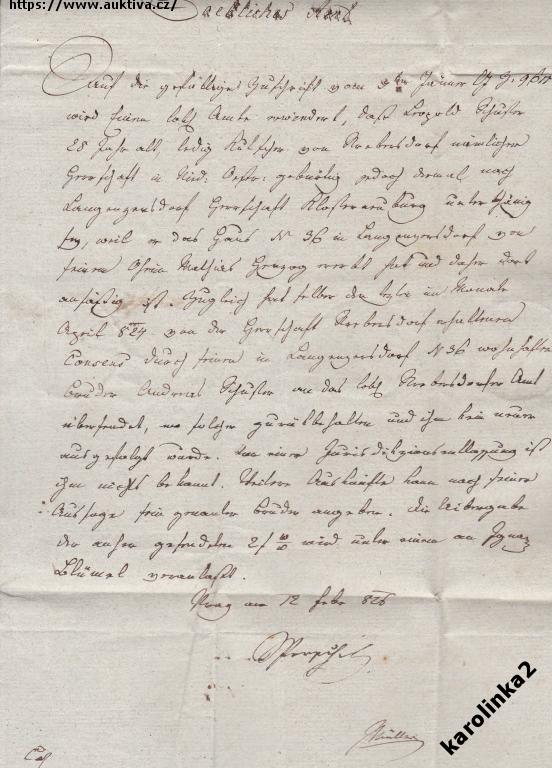 https://www.auktiva.cz/
Löbliches Amt
Auf die gefällige Zuschrift vom 3ten Jäner
wird einem löbl Amte erwiedert, daß Leopold Schuster
28 Jahr alt, ledig von Strebersdorf nämlichen
Herrschaft in Nied: Oestr: gebürtig jedoch diemal nach
Langenzersdorf Herrschaft Klosterneuburg unterthänig
sey, weil er das Haus N 36 in Langenzersdorf von
seinem Oheim Mathias Herzog ererbt hat und daher dort
ansäßig ist. Zugleich hat selber den im Monate
April 824 von der Herrschaft Strebersdorf erhaltenen
Consens durch seinen in Langenzersdorf N 36 wohnhaften
Bruder Andreas Schuster an das löbl Strebersdorfer Amt
übersendet, wo solcher zurükbehalten und ihm kein neuer
ausgefolgt wurde. Von einer Jurisdikzionsentlassung ist
ihm nichts bekannt. Weitere Auskünfte kann nach seiner
Aussage sein genanter Bruder angeben. Die Uibergabe
der anher gesendeten 2 f wird unter einem an Ignaz
Blümel veranlaßt.
Prag am 12 Febr 826
Müller
karolinka2